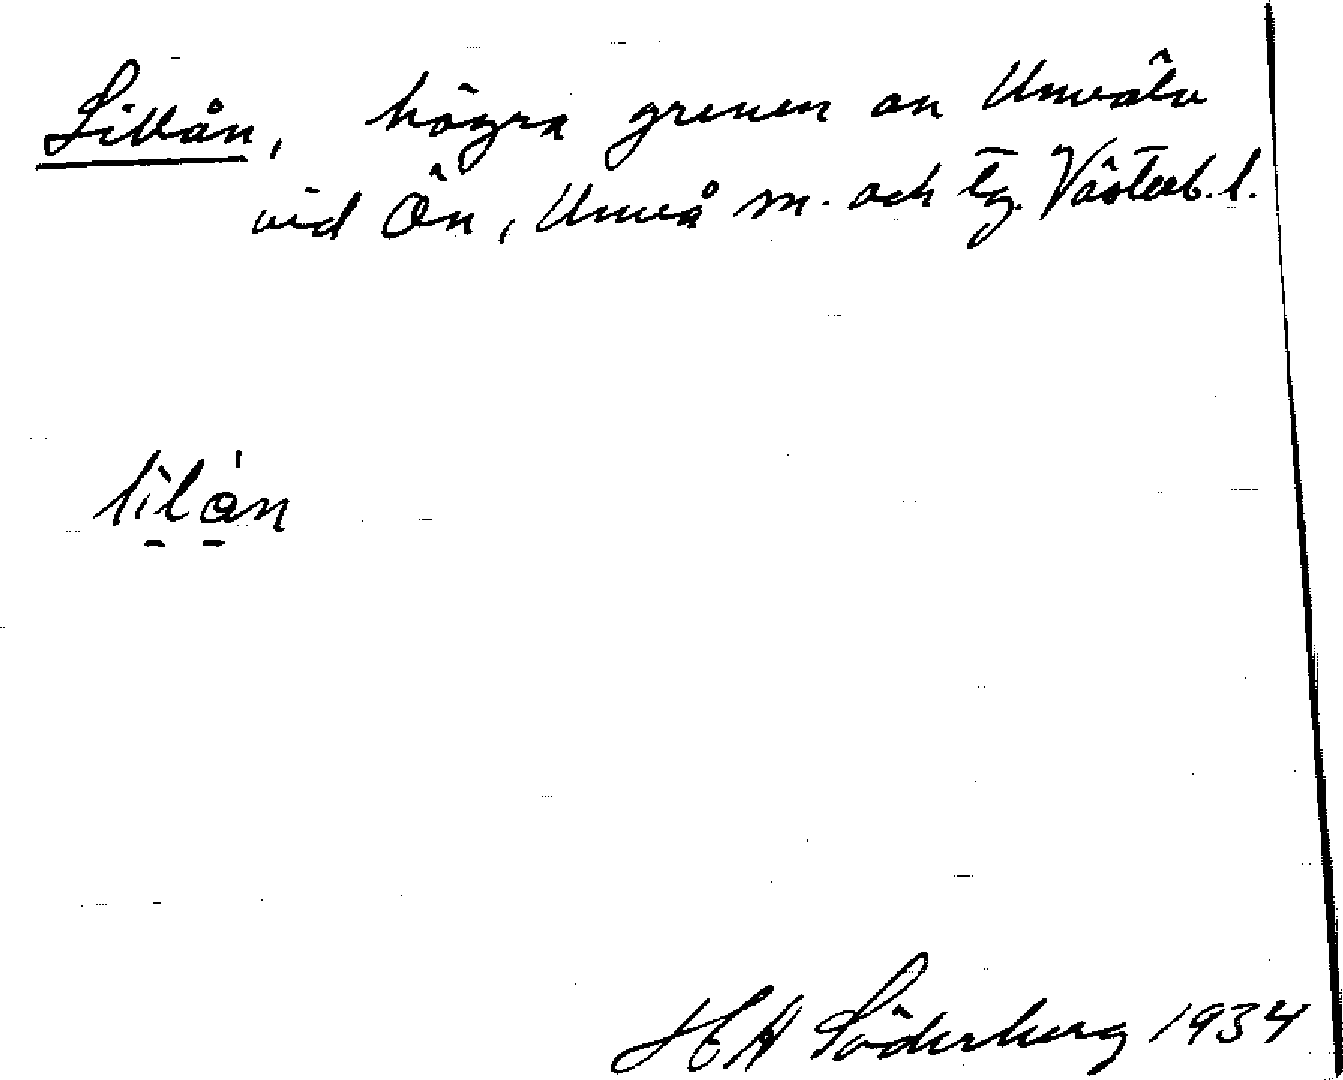 Lillån, högra grenen av Umeälv
vid Ön, Umeå m. och tg. Västerb. l.
lìlán
H A Söderberg 1934